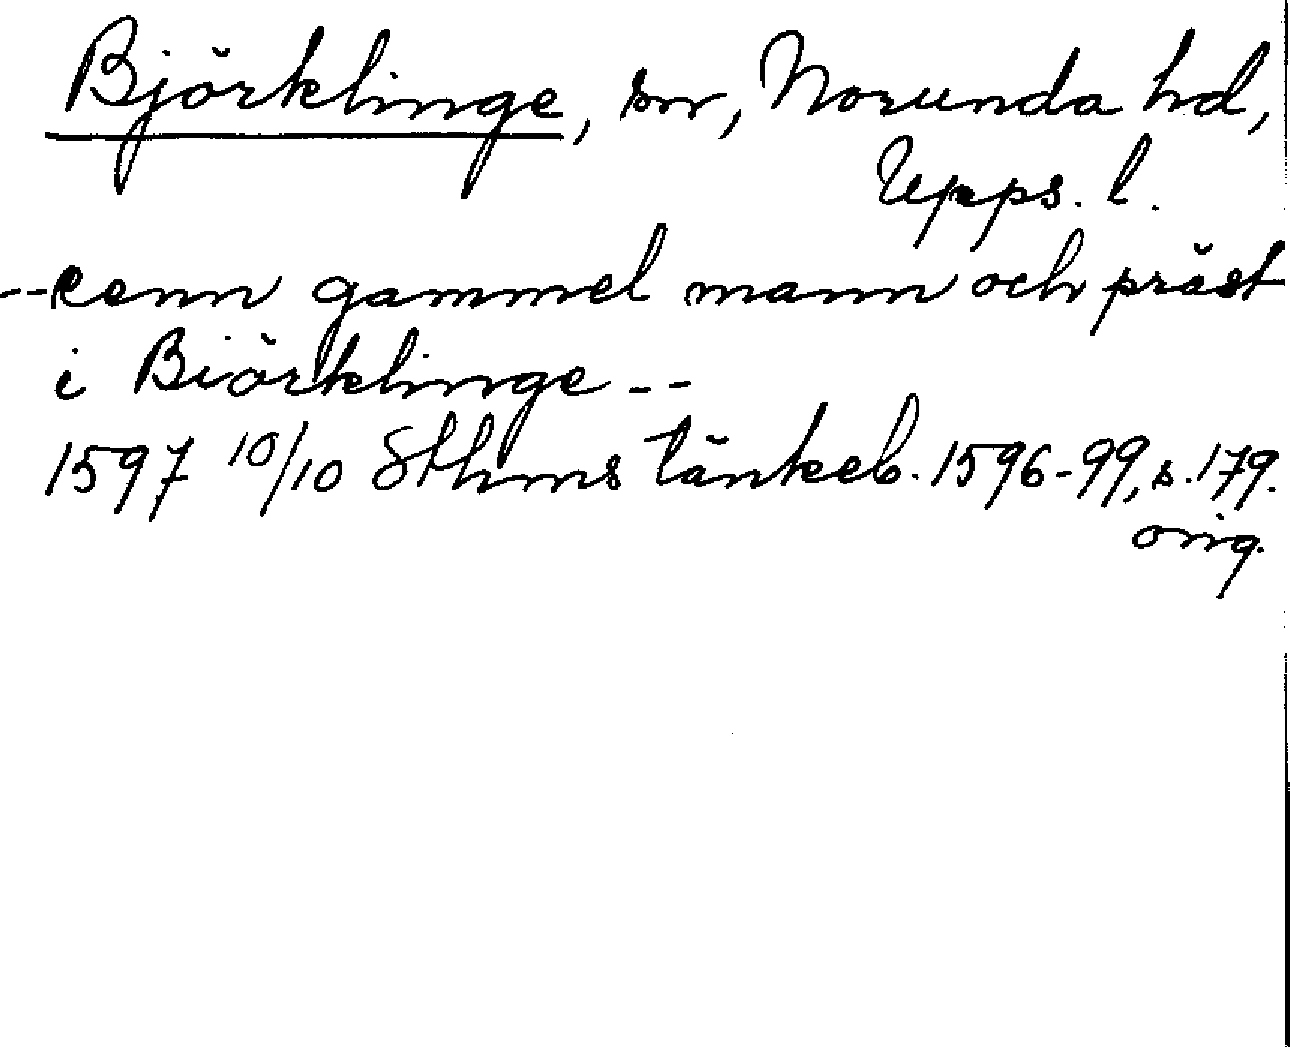 Björklinge, sn, Norunda hd,
Upps. l.
--eenn gammel mann och präst
i Biörklinge--
1597 10/10 Sthms tänkeb. 1596-99, s. 179.
orig.